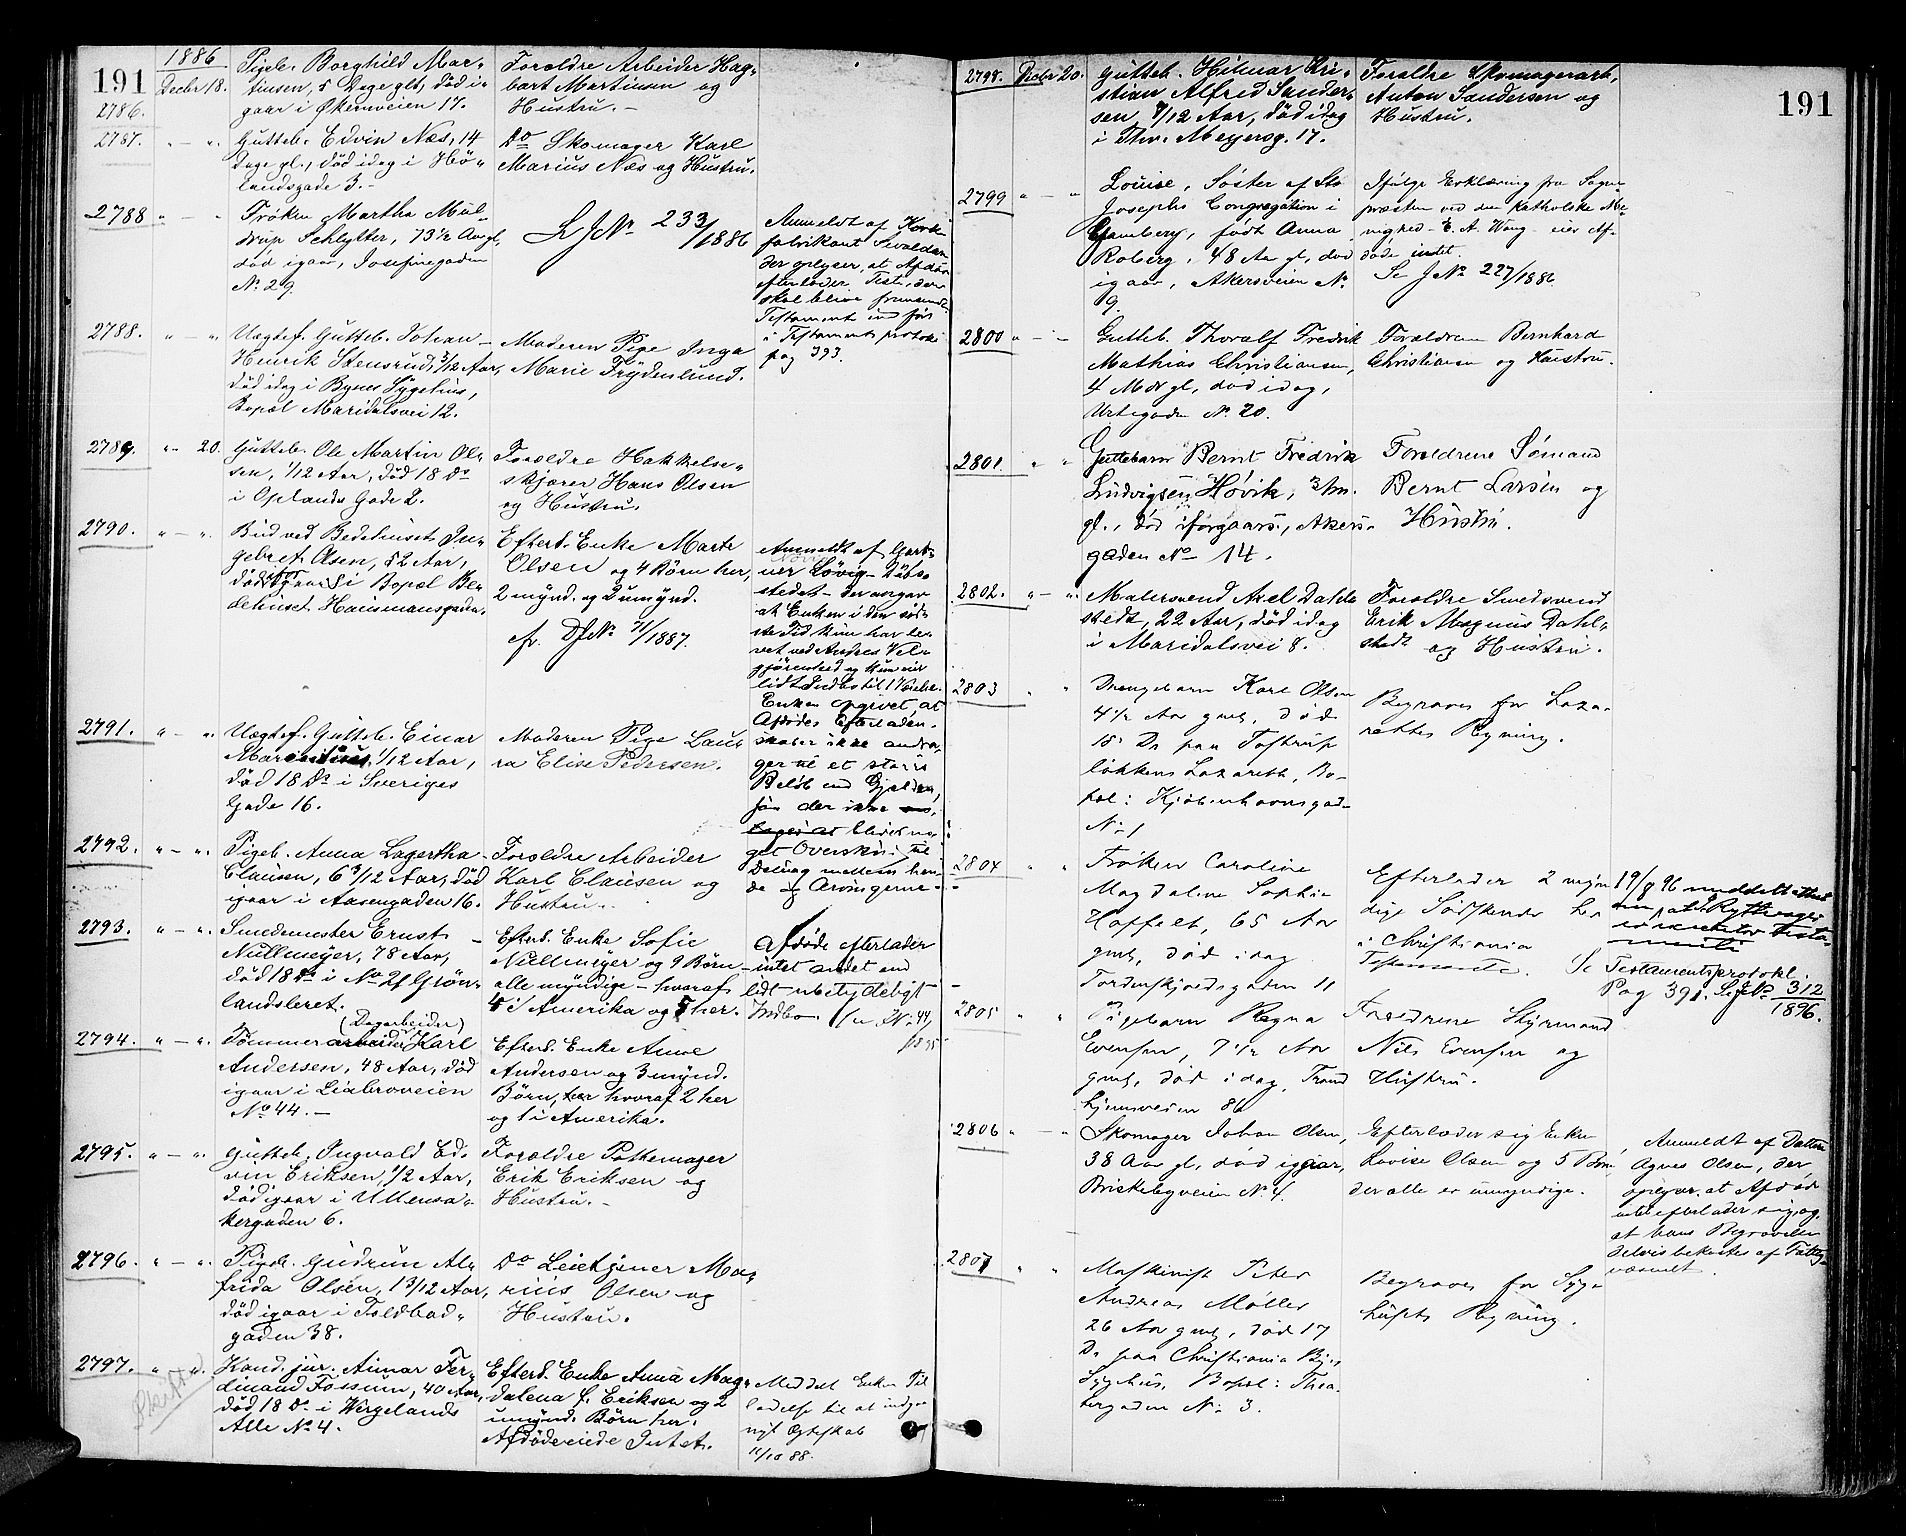 191
1886
2786.
Decbr 18.
Pigeb. Borghild Mar-
tinsen, 5 Dage glt, død i-
gaar i Økernveien 17.
Forældre Arbeider Hag-
bart Martinsen og
Hustru.-
2787. " - ".
Gutteb. Edvin Næs, 14
Dage gl., død idag i Hö-
landsgade 3.-
Do Skomager Karl
Marius Næs og Hustru.
2788 " - "
Frøken Martha Mül-
drup Schlytter, 73 1/2 Aar gl,
død igaar, Josefinegaden
No 29.
JNo 233/1886
Anmeldt af
fabrikant
der oplyser, at Afdøde
efterlader Test., der
skal blive fremsendt
Testamentet ind ført
i Testaments protokol
pag 393.
2788. " - ".
Uægtef. Gutteb. Johan
Henrik Stensrud, 3/12 Aar,
død idag i Byens Sygehus,
Bopæl Maridalsvei 12.
Moderen Pige Inga
Marie Frydenlund.
2789. " - 20.
Gutteb. Ole Martin Ol-
sen, 1/12 Aar, død 18 Ds
i Oplands Gade 2.
Forældre Hakkelse-
skjærer Hans Olsen
og Hustru.
2790. " - ".
Bud ved Bedehuset In-
gebret Olsen, 52 Aar,
død i Bopæl Be-
dehuset Hausmansgaden.
Efterl. Enke Marte
Olsen og 4 Børn her,
2 mynd. og 2 umynd.
cfr. DJNo 71/1887.
Anmeldt af Gart-
ner Løvig
der angav
at Enken i den sid-
ste Tid kun har le-
vet ved Andres Vel-
gjørenhed og kun eier
lidt Indbo til 1 Værelse.
Enken opgivet, at
Afdødes Efterladen-
skaber ikke andra-
ger til et større
Beløb end Gjælden,
saa der ikke
bliver no-
get Overskud til
Deling mellem hen-
de og Arvingerne.
2791. " - ".
Uægtef. Gutteb. Einar
1/12 Aar,
død 18 Ds i Sveriges
Gade 16.
Moderen Pige Lau-
ra Elise Pedersen.
2792. " - ".
Pigeb. Anna Lagertha
Clausen, 6 3/12 Aar, død
igaar i Aasengaden 16.
Forældre Arbeider
Karl Clausen og
Hustru.
2793. " - ".
Smedemester Ernst
Nüllmeyer, 78 Aar,
død 18 Ds i No 21 Grøn-
landsleret.
Efterl. Enke Sofie
Nüllmeyer og 9 Børn
alle myndige - hvoraf
4 i Amerika og 5 her.
Afdøde efterlader
intet andet end
lidt ubetydeligt
Indbo.
2794. " - ".
(Dagarbeider)
Tømmerarbeider Karl
Andersen, 48 Aar, død
igaar i Liabroveien
No 44.-
Efterl. Enke Anne
Andersen og 3 mynd.
Børn, hvoraf 2 her
og 1 i Amerika.
2795. " - ".
Gutteb. Ingvald Ed-
vin Eriksen, 1/2 Aar,
død igaar i Ullensa-
kergaden 6.
Forældre Pottemager
Erik Eriksen og
Hustru.-
2796. " - ".
Pigeb. Gudrun Al-
frida Olsen, 1 3/12 Aar,
død igaar i Toldbod-
gaden 38.
Do Leietjener Ma-
rius Olsen og
Hustru.
2797. " - ".
Kand. jur. Aimar Fer-
dinand Fossum, 40 Aar,
død 18 Ds i Wergelands
Alle No 4.
Efterl. Enke Anna Mag-
dalena f. Eriksen og 2
umynd. Børn her.
Afdøde eiede Intet.
Meddelt Enken Til-
ladelse til at indgaa
nyt Ægteskab
11/10 88.
191
2798. Decbr 20.
Gutteb. Hilmar Kri-
stian Alfred Sander-
sen, 7/12 Aar, død idag
i Thv. Meyersg. 17.
Forældre Skomagerarb.
Anton Sandersen og
Hustru.
2799 " - "
Louise, Søster af St.
Josephs Congregation i
født Anna
Roberg, 48 Aar gl, død
igaar, Akersveien No
9.
Ifølge Erklæring fra Sogne-
præsten ved den katholske Me-
nighed - E. A. Wang - eier Af-
døde intet.
Se JNo 227/1886
2800 " - "
Gutteb. Thoralf Fredrik
Mathias Christiansen,
4 Mdr gl, død idag,
Urtegaden No 20.
Forældrene Bernhard
Christiansen og Hustru.
2801 " "
Guttebarn Bernt Fredrik
Ludvigsen Høvik, 3/m.
gl., død iforgaars, Akers-
gaden No 14.
Forældrene Sømand
Bernt Larsen og
Hustru.
2802. " - ".
Malersvend Axel Dahl-
stedt, 22 Aar, død idag
i Maridalsvei 8.
Forældre Smedsvend
Erik Magnus Dahl-
stedt og Hustru.
2803 " "
Drengebarn Karl Olsen
4 1/2 Aar gml, død
18 Ds paa Toftrup
løkkens Lazareth, Bo-
pæl: Kjøbenhavnsgad.
No 1
Begraves for Laza-
rettes Regning.
2804 " "
Frøken Caroline
Magdalene Sophie
Hoffelt, 65 Aar
gml, død idag
Tordenskjoldsgaden 11
Efterlader 2 myn-
dige Sødskende her
i Christiania
Testamente.
19/9 96 meddelt
Se Testamentsprotokl.
Pag 391. Se JNo 312/1896.
2805 " "
Pigebarn Ragna
Evensen, 7 1/2 Aar
gml, død idag, Trond
hjemsveien 86
Forældrene Styrmand
Nils Evensen og
Hustru.
2806 " - "
Skomager Johan Olsen,
38 Aar gl, død igaar,
Briskebyveien No 4.
Efterlader sig Enken
Lovise Olsen og 5 Børn
der alle er umyndige.
Anmeldt af Datteren
Agnes Olsen, der
opgav, at Afdøde
intet efterlader sig, og
at hans Begravelse
delvis bekostes af Fattig-
væsenet.
2807 " "
Maskinist Peter
Andreas Møller
26 Aar gml, død 17
Ds paa Christiania By-
sygehus, Bopæl: Thea-
tergaden No 3.
Begraves for Syge-
husets Regning.